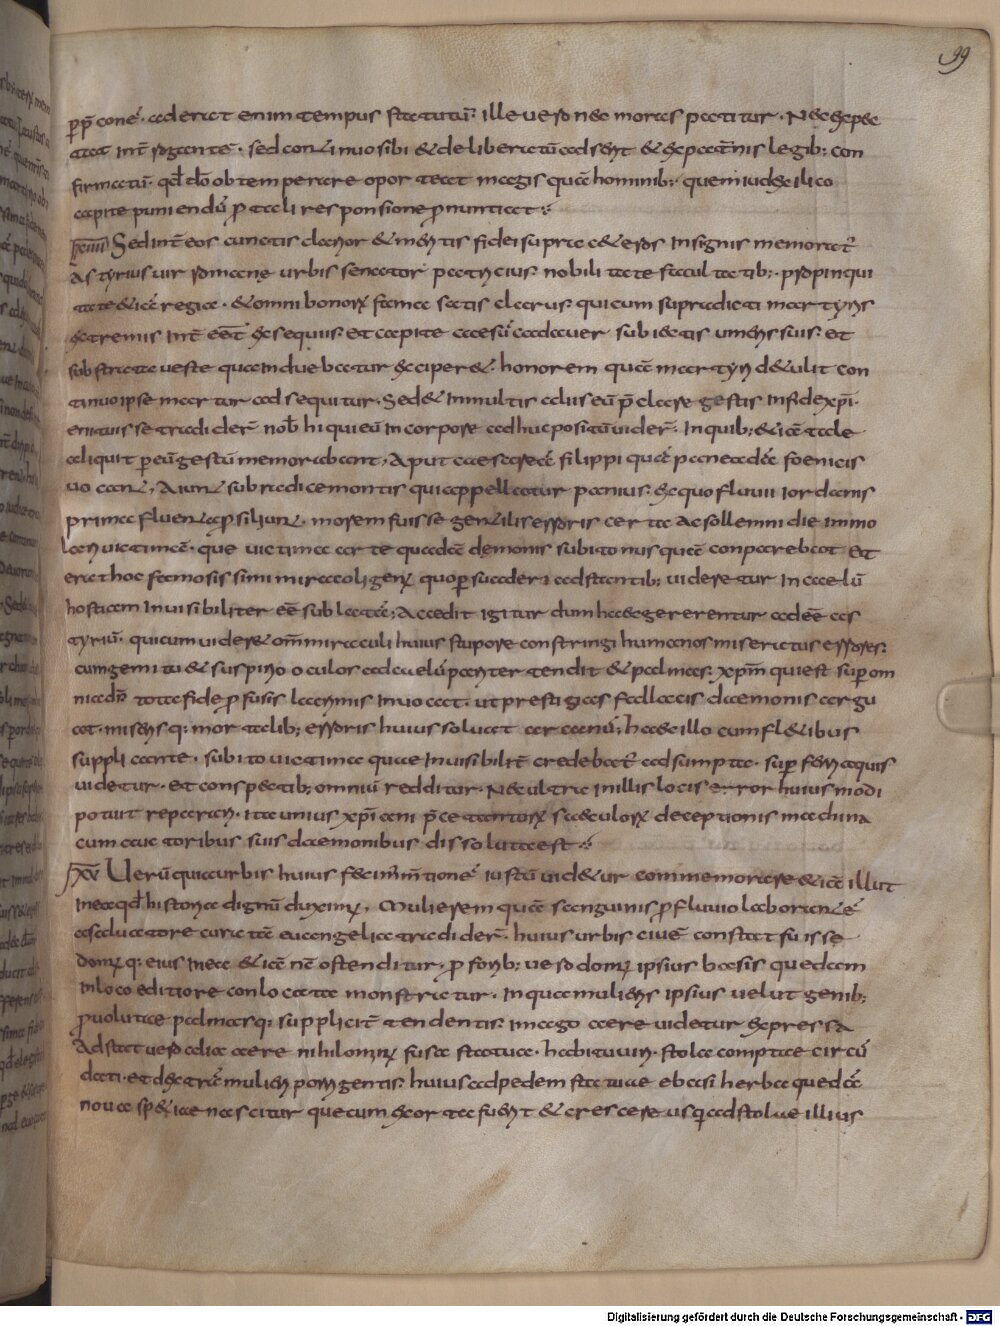 99
ppconē. aderat enim tempus statutū. ille vero nec moras patitur. Nec expec
tat int rogantē. sed continuo sibi & deliberatū adserit & ex paternis legib; con
firmatū. qd do obtemperare oportet magis quā hominib;. quem iudex ilico
capite puniendū p tali responsione pnuntiat;
XIIII Sed int eos cunctis clarior & mentis fidei supra ceteros insignis memorat
Astyrius vir romane urbis senator patricius. nobilitate facultatib;. propinqui
tate & iā regia. & omni bonorum fama satis clarus. qui cum supradicti martyris
extremis int eēt exsequiis. et capite caesū cadaver subiectis umeris suis. et
substrata veste qua induebatur exciper&. honorem quē martyri d&ulit con
tinuo ipse martur adsequitur. Sed & in multis aliis eū pclare gestis in fide xpi
enituisse tradider nob hi qui eū in corpore adhuc positū vider. In quib; & iā tale
aliquit p eū gestū memorabant, Aput caesareā filippi quā paneadē foenicis
vocant, Aiunt sub radice montis qui appellatur panius. ex quo fluvii iordanis
prima fluenta psiliunt. morem fuisse gentilis erroris certa ac sollemni die immo
lari victimā. que victima arte quadā demonis subito nusquā conparebat et
erat hoc famosissimi miraculi genus quo p succedera adstantib; videretur in caelū
hostiam invisibiliter eē sublatā; Accedit igitur dum haec gererentur adeē as
tyriū. qui cum videre omi miraculi huius stupore constringi humanos miseratus errores
cum gemitu & suspirio oculos ad caelū pariter tendit & palmas. xpm qui est sup om
nia dm tota fide p fusis lacrimis invocat. ut prestigias fallacis daemonis argu
at. miseris q; mortalib; erroris huius solvat arcanū; haec illo cum fl&ibus
supplicante. subito victima quae invisibilit credebat adsumpta. sup feri aquis
videtur. et conspectib; omniū redditur. Nec ultra in illis locis error huius modi
potuit reparari. ita unius xpiani pce tantorum saeculorum deceptionis machina
cum auctoribus suis daemonibus dissoluta est;
XV Verū quia urbis huius fecimus mtionē iustū vid&ur commemorare & iā illut
in ea qd historia dignū duximus, Mulierem quā sanguinis pfluvio laborantē
a salvatore curatā euangelia tradider. huius urbis civē constat fuisse
domus q; eius in ea & iā nc ostenditur. p forib; vero domus ipsius basis quedam
in loco editiore conlocata monstratur. in qua mulieris ipsius velut genib;
pvolutae palmasq; supplicit tendentis. imago aere videtur expressa
Adstat vero alia aere nihilominus fusa statua. habitu viri. stola compta circū
dati. et dextrā mulieri porrigentis. huius ad pedem statuae e basi herba quedā
nova speciae nascitur que cum exorta fuerit & crescere usq; ad stolae illius
Digitalisierung gefördert durch die Deutsche Forschungsgemeinschaft - DFG